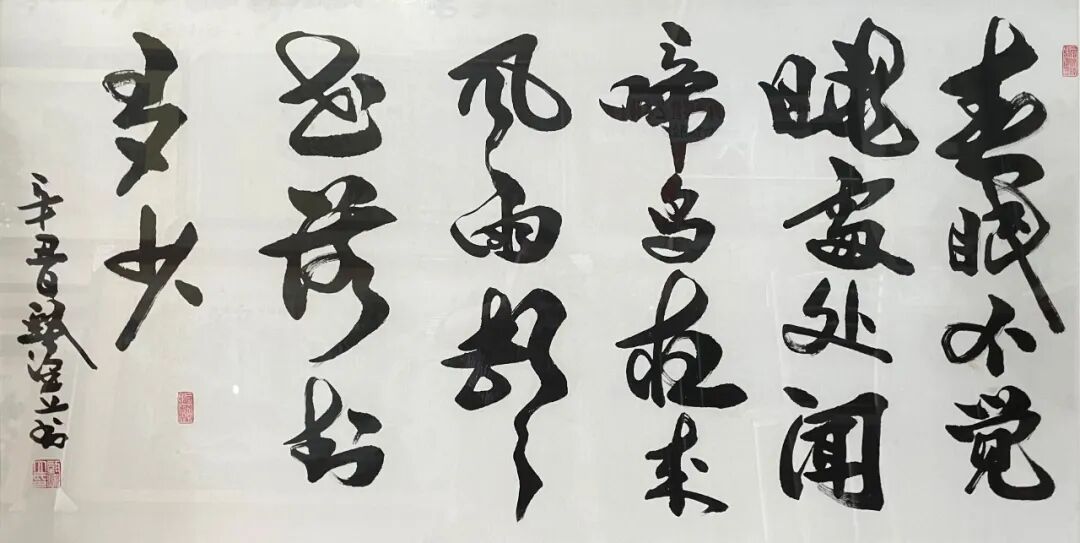 春眠不觉
晓處处闻
啼鸟夜来
风雨聲
花落知
多少
辛丑